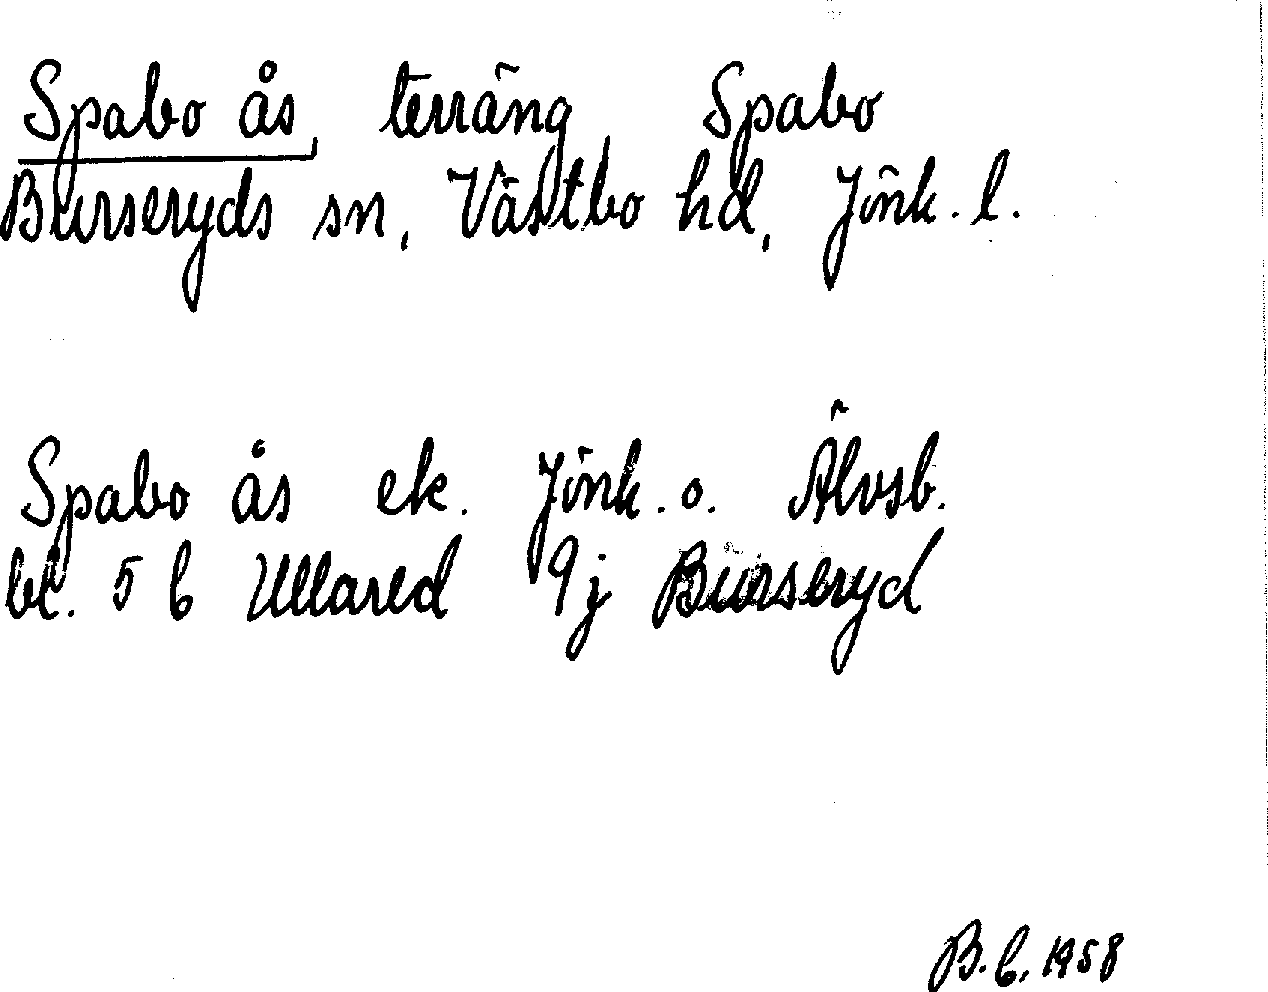 Spabo ås, terräng, Spabo
Burseryds sn, Västbo hd, Jönk. l.
Spabo ås ek. Jönk. o. Älvsb.
bl. 5 b Ullared 9j Burseryd
B. G. 1958